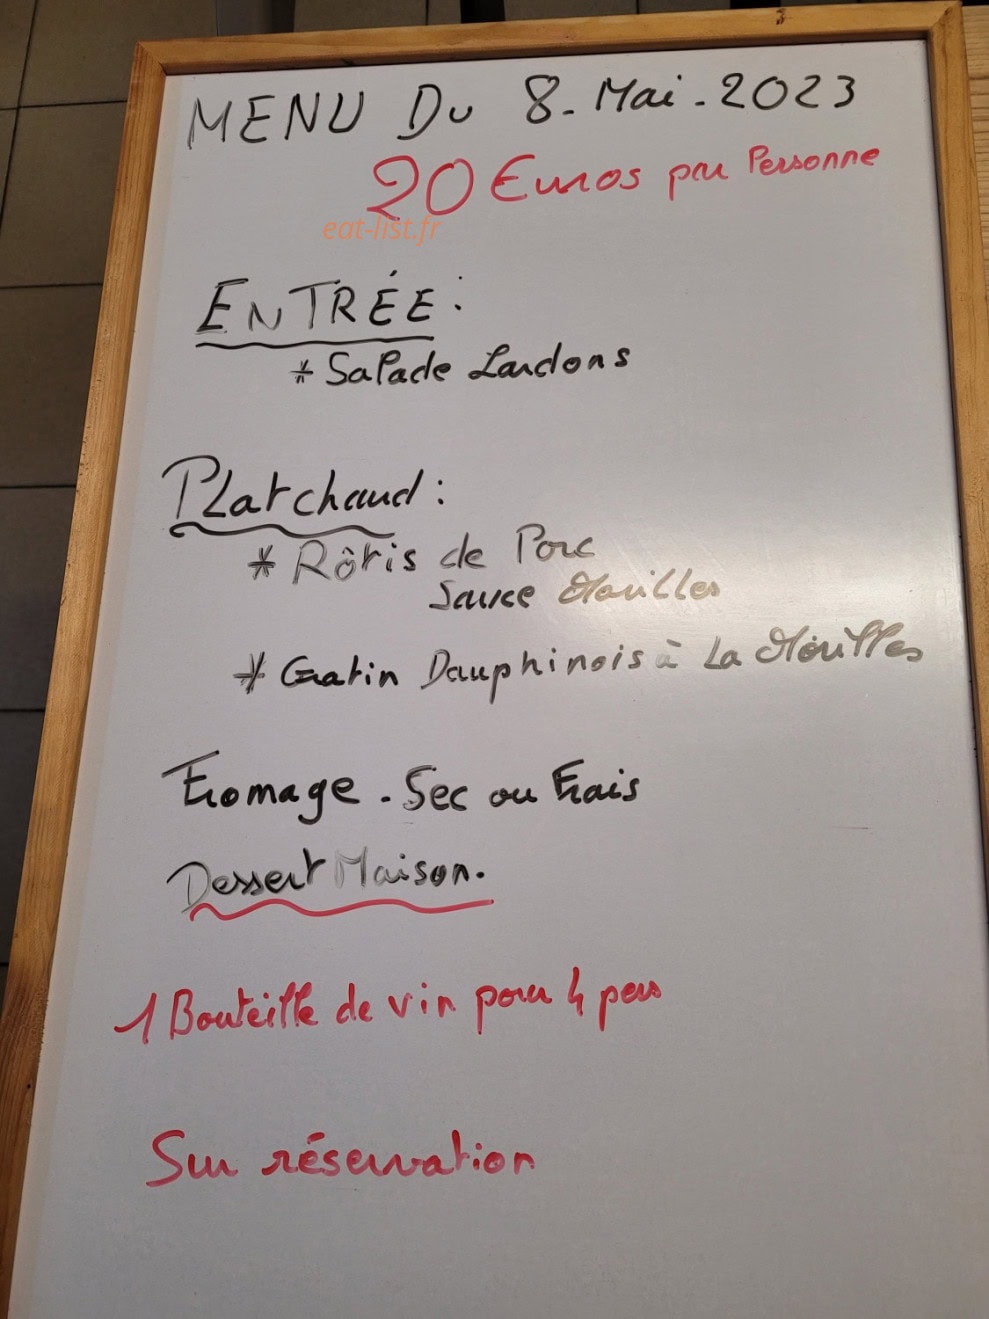 MENU DU 8. Mai. 2023
20 Euros par Personne
eat-list.fr
ENTRÉE :
* Salade Lardons
Plat chaud :
* Rôtis de Porc
Sauce Morilles
* Gratin Dauphinois à La Morilles
Fromage. Sec ou Frais
Dessert Maison.
1 Bouteille de vin pour 4 pers
Sur réservation